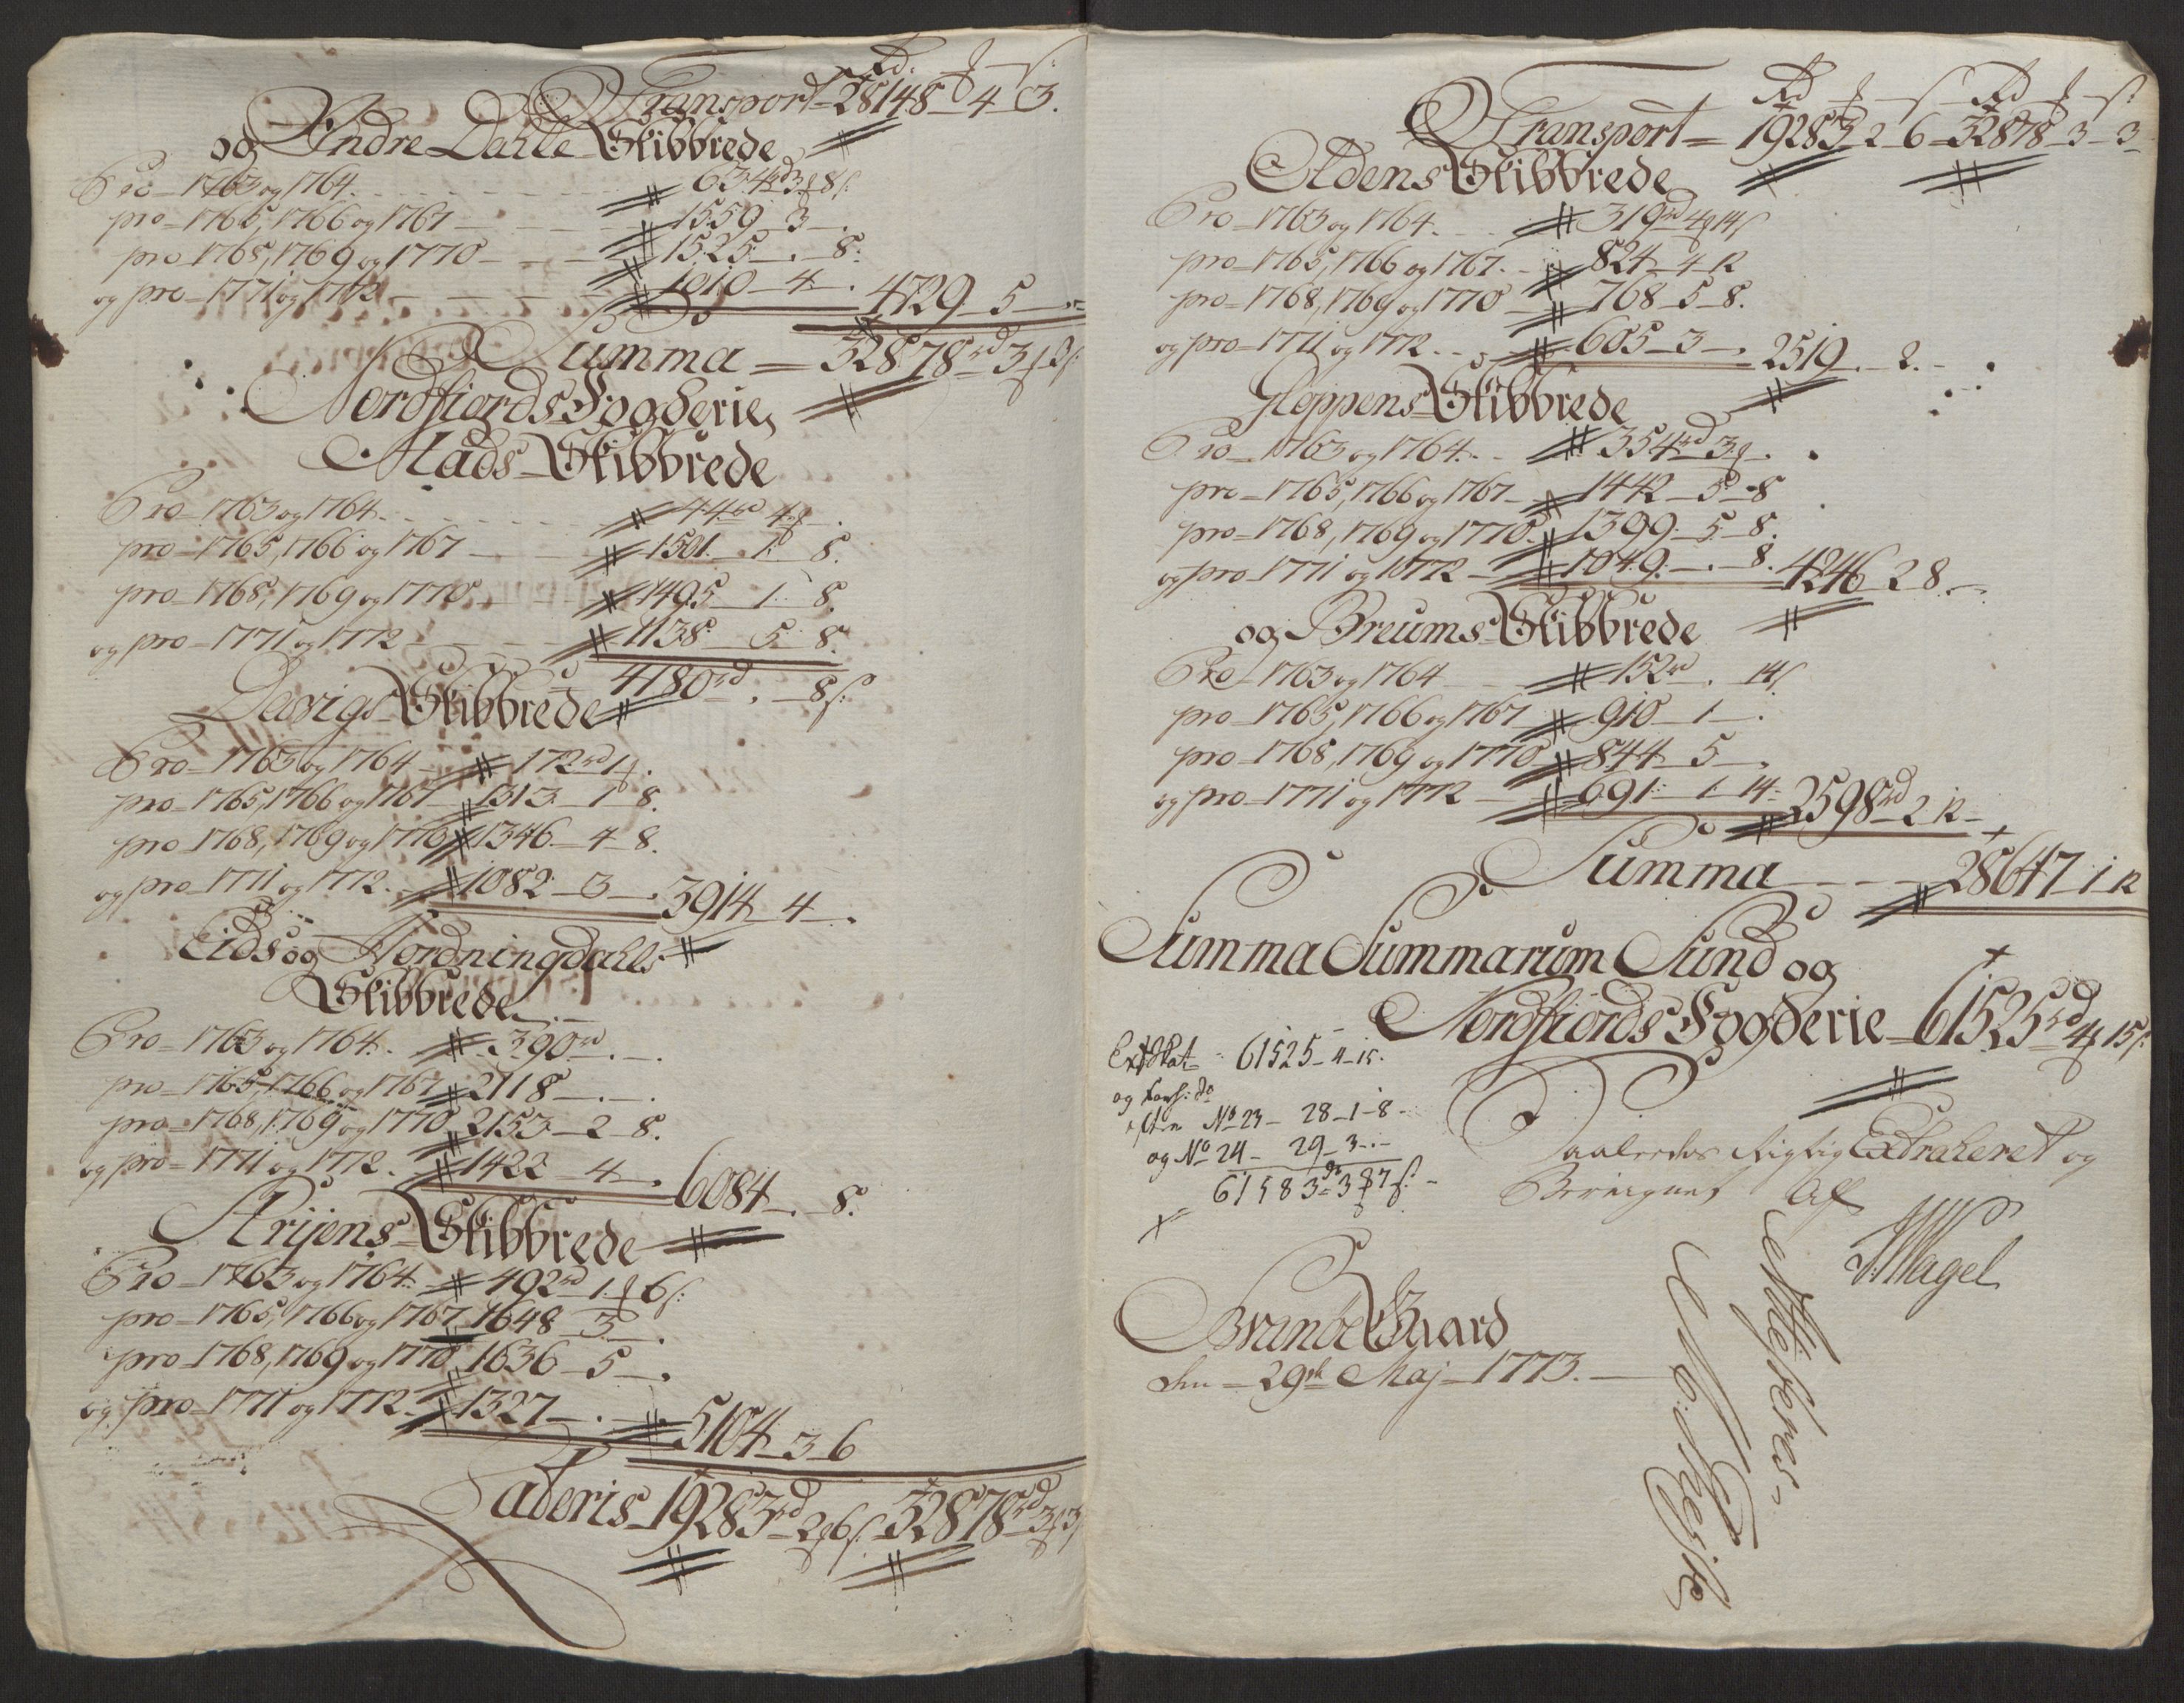 Rd. ƒ ß:
Transport = 28148 - 4 - 3.
og Indre Dahle Skibbrede
Pro - 1763 og 1764. - 634 rd 3 ƒ 8 ß:
pro - 1765, 1766 og 1767 - 1559 - 3 - .
pro - 1768, 1769 og 1770 - 1525 - . - 8.
og pro - 1771 og 1772 - 1010 - 4 - . 4729 - 5 - .
Summa = 32878 rd 3 ƒ 3 ß
Nordfiords Fogderie,
Mads Skibbrede
Pro - 1763 og 1764. - 44 rd 4 ƒ - .
pro - 1765, 1766 og 1767 - 1501 - 1 - 8.
pro - 1768, 1769 og 1770 - 1495 - 1 - 8.
og pro - 1771 og 1772 - 1138 - 5 - 8.
4180 rd . - 8 ß:
Davigs Skibbrede
Pro - 1763 og 1764 - 172 rd 1 ƒ .
pro - 1765, 1766 og 1767 - 1313 - 1 - 8.
pro - 1768, 1769 og 1770 - 1346 - 4 - 8.
og pro - 1771 og 1772. - 1082 - 3 - . 3914 - 4 - .
Eids og Hordningdahls
Skibbrede
Pro - 1763 og 1764. - 390 rd . - .
pro - 1765, 1766 og 1767 - 2118 - . - .
pro - 1768, 1769 og 1770 - 2153 - 2 - 8.
og pro - 1771 og 1772. - 1422 - 4 - . 6084 - . - 8.
Strijens Skibbrede
Pro - 1763 og 1764. - 492 rd 1 ƒ 6 ß:
pro - 1765, 1766 og 1767 - 1648 - 3 - .
pro - 1768, 1769 og 1770 - 1636 - 5 - .
og pro - 1771 og 1772. - 1327 - . - . 5104 - 3 - 6
Lateris - 19283 rd 2 ƒ 6 ß: 32878 rd 3 ƒ 3 ß
Rd ƒ ß Rd ƒ ß:
Transport = 19283 - 2 - 6 - 32878 - 3 - 3 -
Oldens Skibbrede
Pro - 1763 og 1764. - 319 rd 4 ƒ 14 ß
pro - 1765, 1766 og 1767. - 824 - 4 - 12
pro - 1768, 1769 og 1770 - 768 - 5 - 8.
og pro - 1771 og 1772. - 605 - 3 - . 2519 - . - 2. -
Gloppens Skibbrede
Pro - 1763 og 1764. - 354 rd 3 ƒ - .
pro - 1765, 1766 og 1767 - 1442 - 5 - 8
pro - 1768, 1769 og 1770. 1399 - 5 - 8.
og pro - 1771 og 1772 - 1049 - . - 8. 4246 - 2 8. -
og Breums Skibbrede
Pro - 1763 og 1764 - 152 rd . 14 ß
pro - 1765, 1766 og 1767 - 910 - 1 - .
pro - 1768, 1769 og 1770 - 844 - 5 - .
og pro - 1771 og 1772 - 691 - 1 - 14 - 2598 rd - 2 12 -
Summa - - - 28647 - 1 12
Summa Summarum Sund og
Nordfiords Fogderie - 61525 rd 4 ƒ 15 ß:
Ext Skat - 61525 - 4 - 15.
og forh: do
efter No 23 - 28 - 1 - 8 -
og No 24 - 29 - 3 - . -
61583 dr 3 ƒ 7 ß. -
Saaledes Rigtig Extraheret og
Beregnet Af
JWagel
Brunde Gaard
den - 29de Maj - 1773.